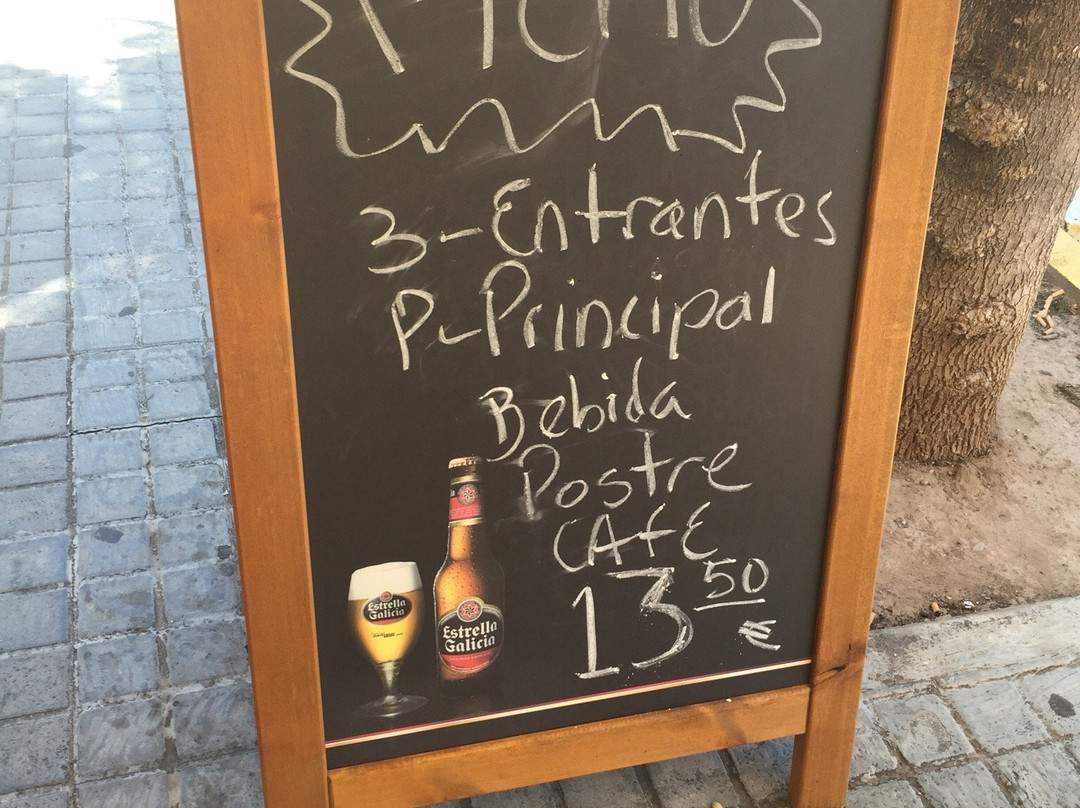 3-Entrantes
P-Principal
Bebida
Postre
CAfé
13 50 €
Estrella
Galicia
Estrella
Galicia